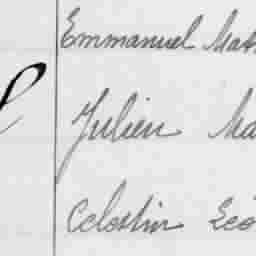 Emmanuel Mat
Julien Ma
Célestin Léo